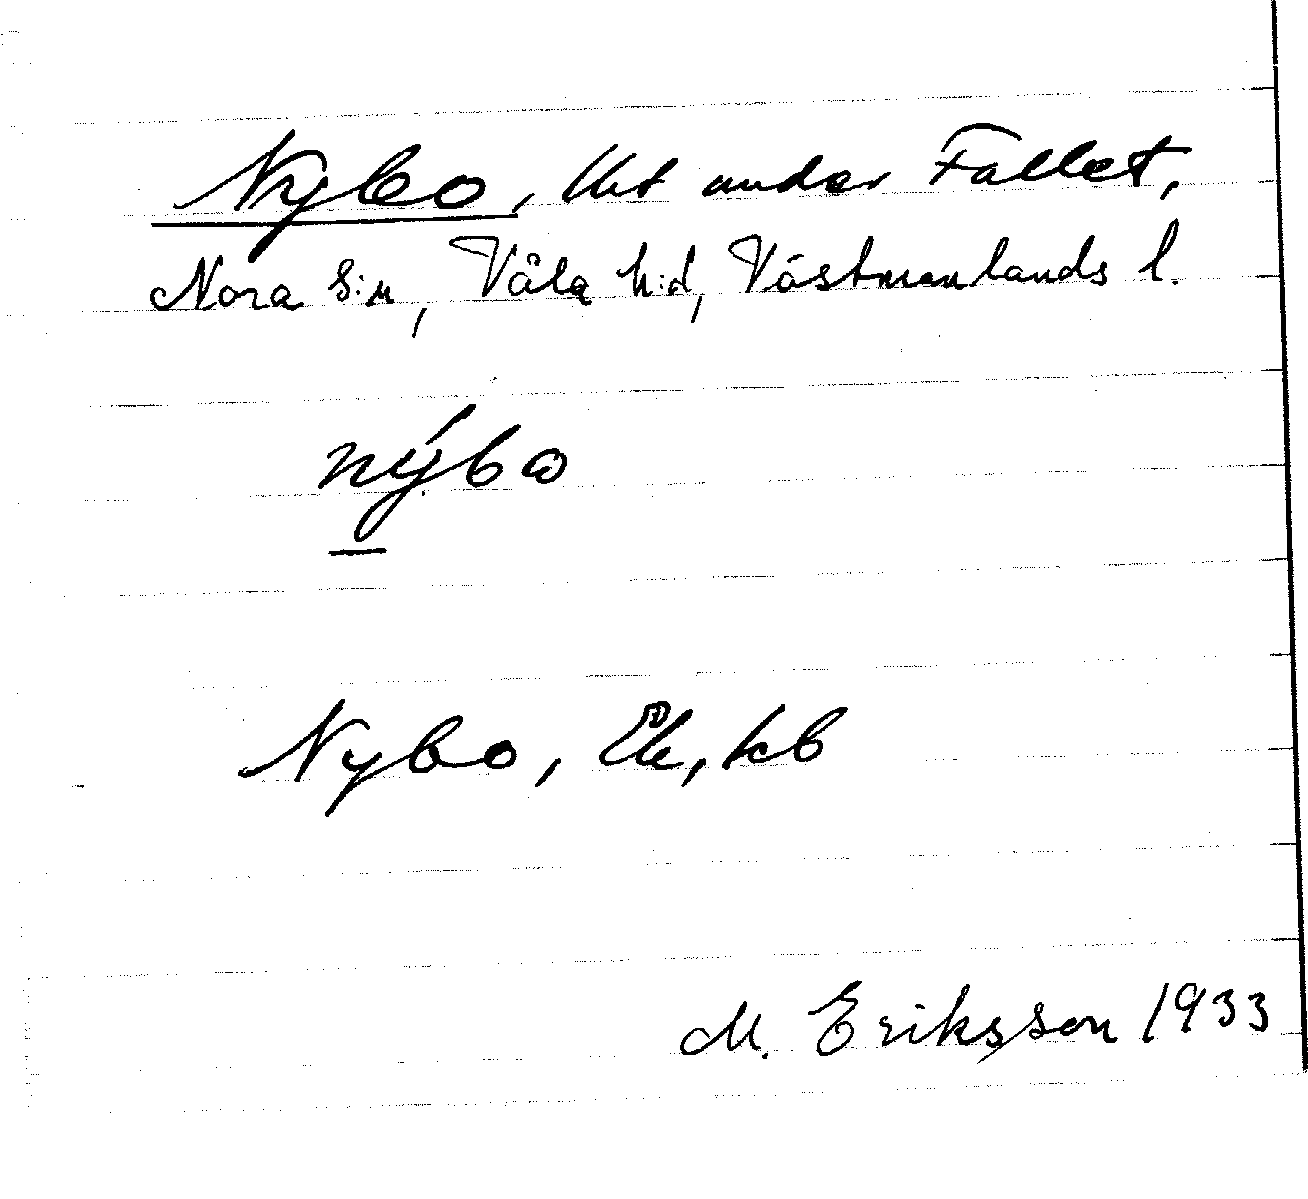 Nybo, lht under Fallet,
Nora s:n, Våla h:d, Västmanlands l.
nýbω
Nybo, Ek, kb
M. Eriksson 1933